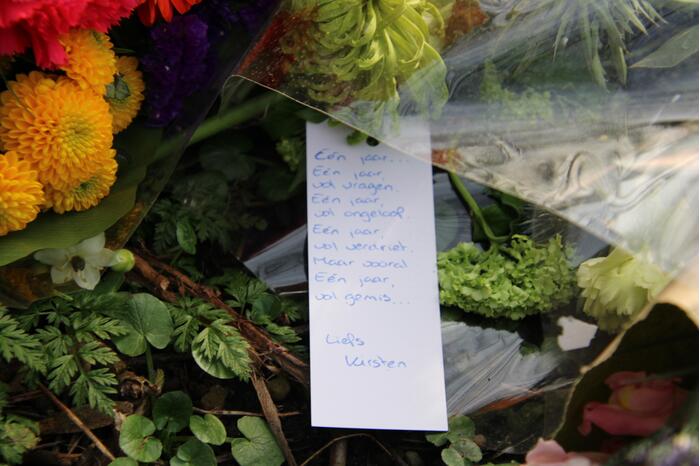 Eén jaar...
Eén jaar,
vol vragen.
Eén jaar,
vol ongeloof.
Eén jaar,
vol verdriet.
Maar vooral
Eén jaar,
vol gemis...
Liefs
Kirsten